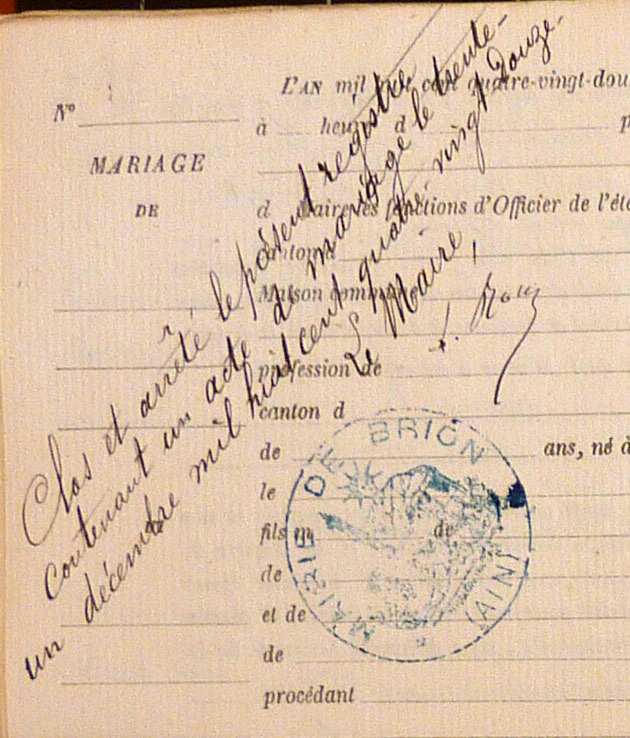 L'AN mil huit cent quatre-vingt-dou
N°
à heure d
MARIAGE
DE
d Maire les fonctions d'Officier de l'éta
canton d
Maison commune
profession de
canton d
de ans, né à
le
fils m de
de
et de
de
procédant
Clos et arrêté le présent registre
contenant un acte de mariage le trente-
un décembre mil huit cent quatre vingt douze.
Le Maire,
MAIRIE DE BRION
(AIN)